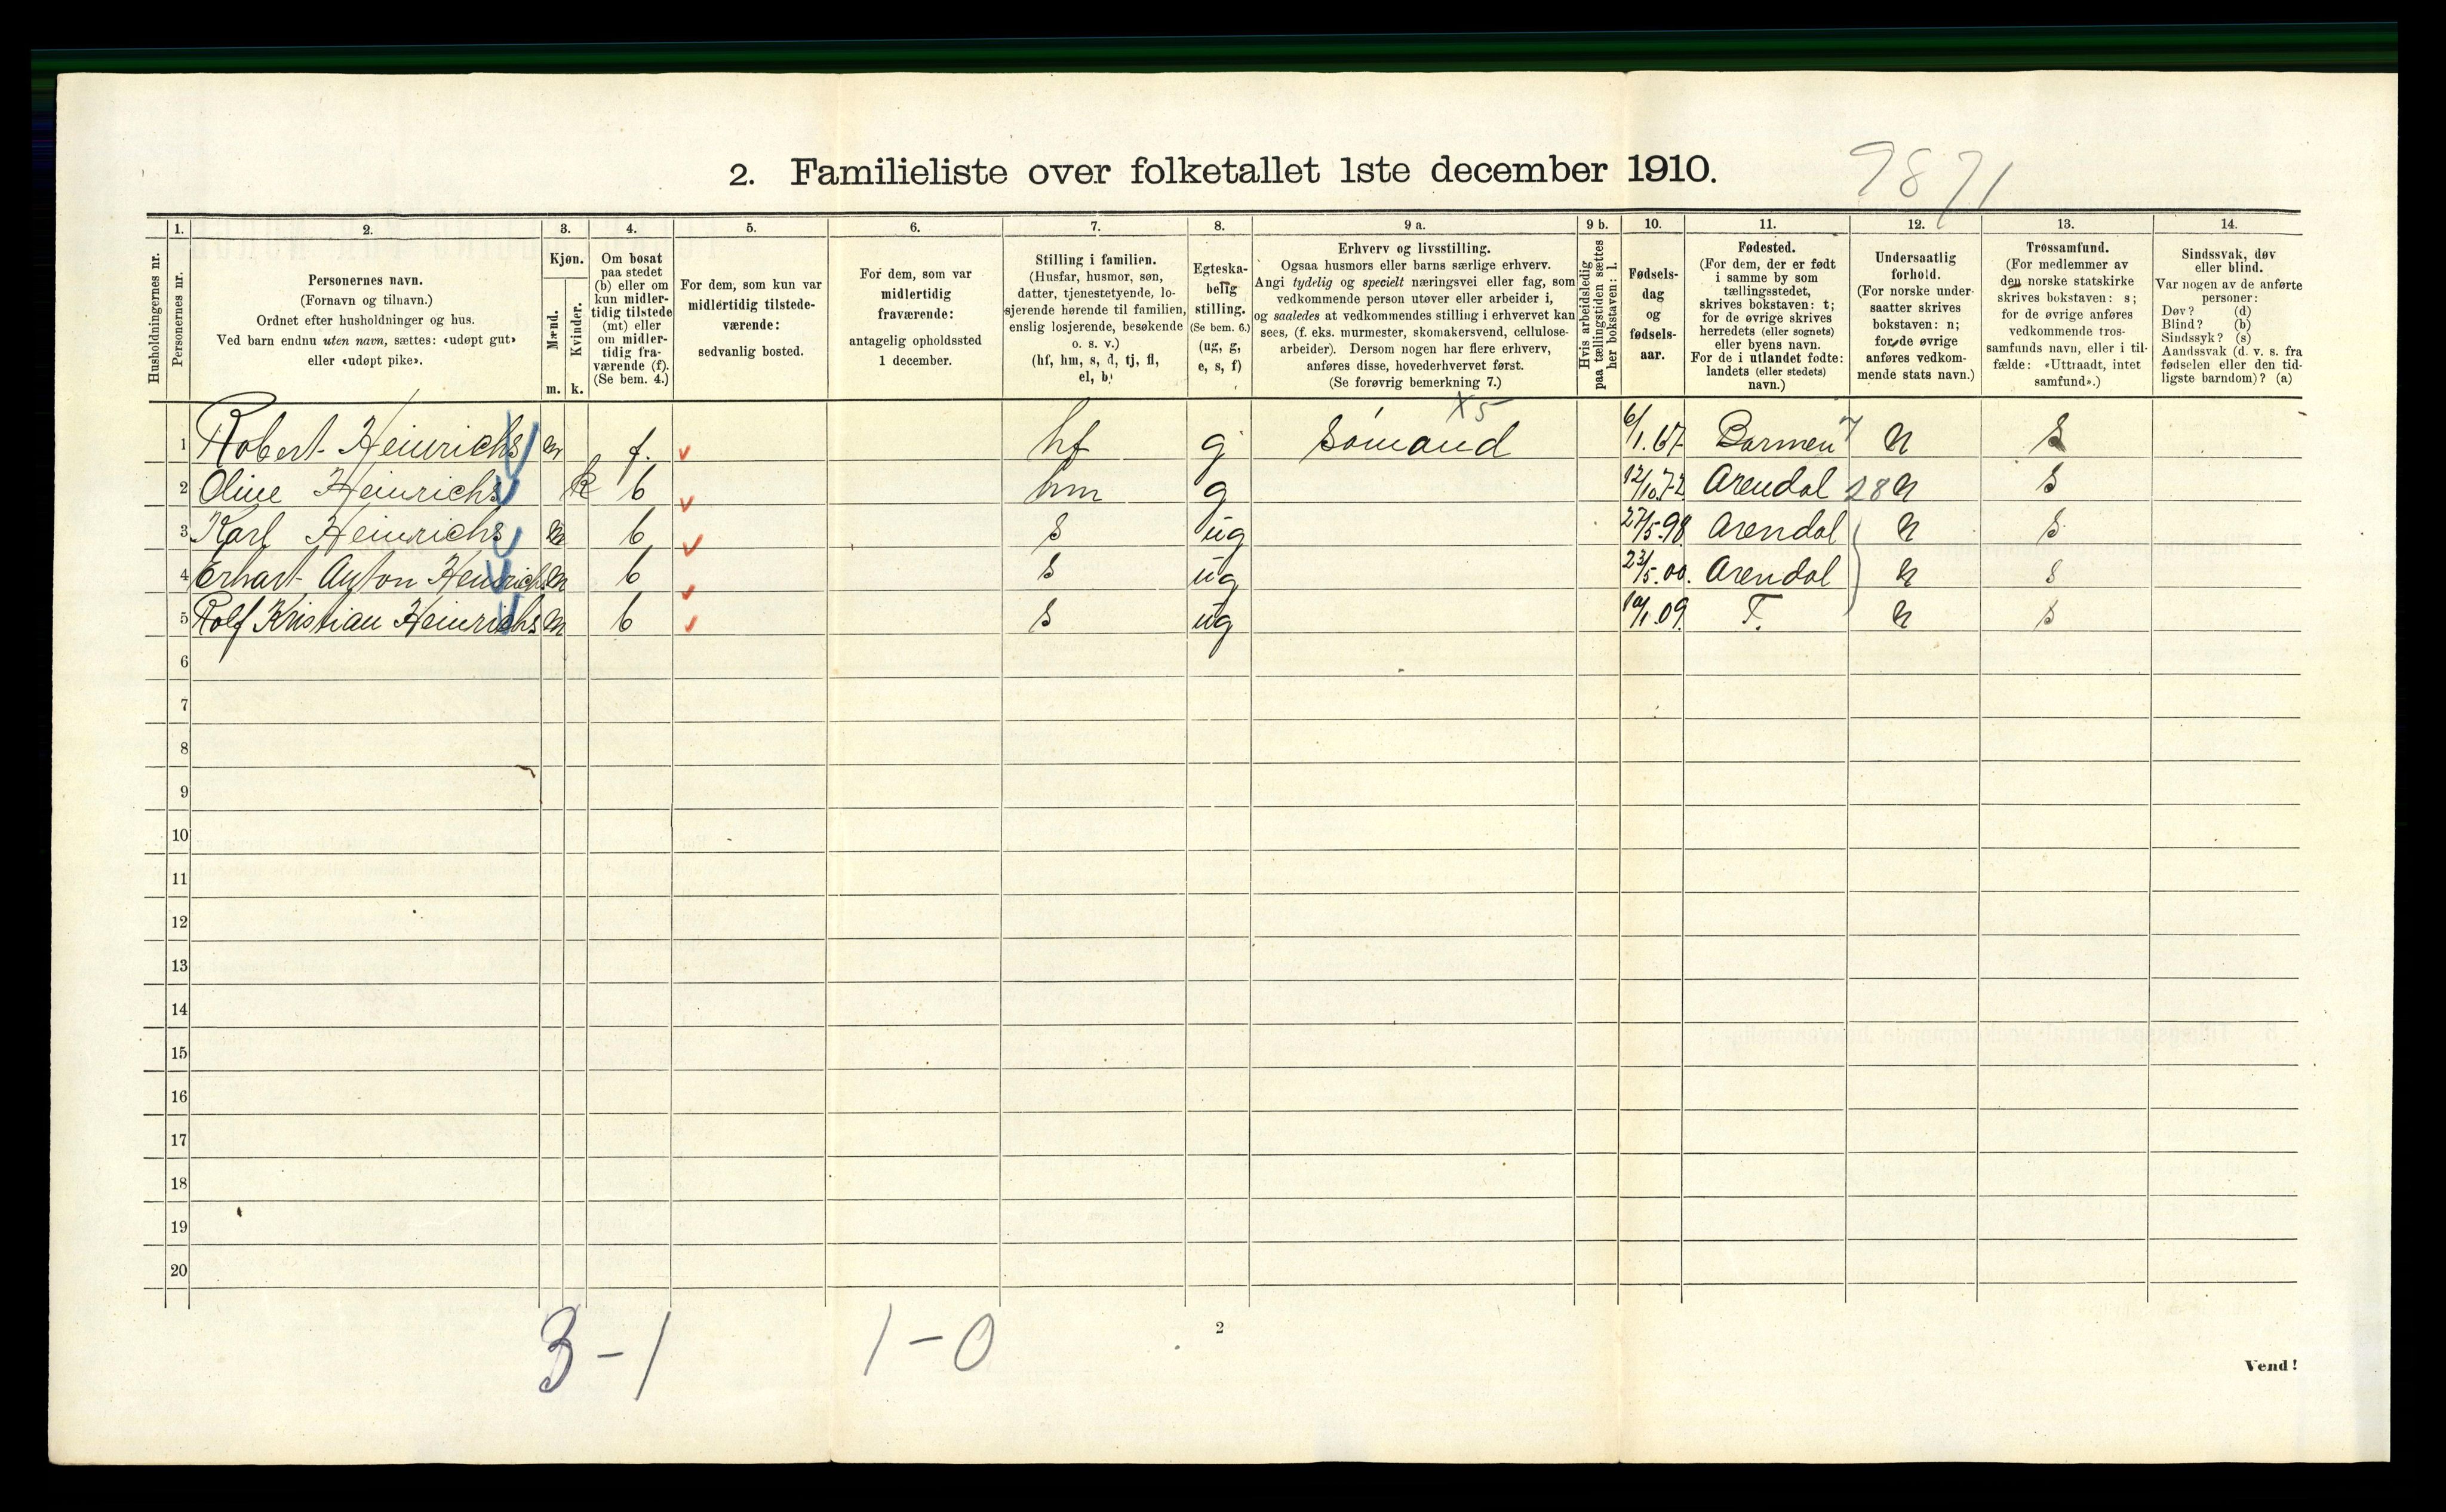 2. Familieliste over folketallet 1ste december 1910.
9871
Husholdningernes nr.
1. Personernes nr.
2. Personernes navn.
(Fornavn og tilnavn.)
Ordnet efter husholdninger og hus.
Ved barn endnu uten navn, sættes: «udøpt gut»
eller «udøpt pike».
3. Kjøn.
Mænd. m.
Kvinder. k.
4. Om bosat
paa stedet
(b) eller om
kun midler-
tidig tilstede
(mt) eller
om midler-
tidig fra-
værende (f).
(Se bem. 4.)
5. For dem, som kun var
midlertidig tilstede-
værende:
sedvanlig bosted.
6. For dem, som var
midlertidig
fraværende:
antagelig opholdssted
1 december.
7. Stilling i familien.
(Husfar, husmor, søn,
datter, tjenestetyende, lo-
sjerende hørende til familien,
enslig losjerende, besøkende
o. s. v.)
(hf, hm, s, d, tj, fl,
el, b)
8. Egteska-
belig
stilling.
(Se bem. 6.)
(ug, g,
e, s, f)
9 a. Erhverv og livsstilling.
Ogsaa husmors eller barns særlige erhverv.
Angi tydelig og specielt næringsvei eller fag, som
vedkommende person utøver eller arbeider i,
og saaledes at vedkommendes stilling i erhvervet kan
sees, (f. eks. murmester, skomakersvend, cellulose-
arbeider). Dersom nogen har flere erhverv,
anføres disse, hovederhvervet først.
(Se forøvrig bemerkning 7.)
9 b. Hvis arbeidsledig
paa tællingstiden sættes
her bokstaven: l.
10. Fødsels-
dag
og
fødsels-
aar.
11. Fødested.
(For dem, der er født
i samme by som
tællingsstedet,
skrives bokstaven: t;
for de øvrige skrives
herredets (eller sognets)
eller byens navn.
For de i utlandet fødte:
landets (eller stedets)
navn.)
12. Undersaatlig
forhold.
(For norske under-
saatter skrives
bokstaven: n;
for de øvrige
anføres vedkom-
mende stats navn.)
13. Trossamfund.
(For medlemmer av
den norske statskirke
skrives bokstaven: s;
for de øvrige anføres
vedkommende tros-
samfunds navn, eller i til-
fælde: «Uttraadt, intet
samfund».)
14. Sindssvak, døv
eller blind.
Var nogen av de anførte
personer:
Døv? (d)
Blind? (b)
Sindssyk? (s)
Aandssvak (d. v. s. fra
fødselen eller den tid-
ligste barndom)? (a)
X5
1 Robert Heinrichs m f. hf g sømand 6/1.67 Barmen 7 n s
2 Oline Heinrichs k b hm g 12/10.72 Arendal 28 n s
3 Karl Heinrichs m b s ug 27/5.98 Arendal n s
4 Erhart Anton Heinrichs m b s ug 23/5.00. Arendal n s
5 Rolf Kristian Heinrichs m b s ug 10/1.09. T. n s
6
7
8
9
10
11
12
13
14
15
16
17
18
19
20
3-1 1-0
2
Vend!